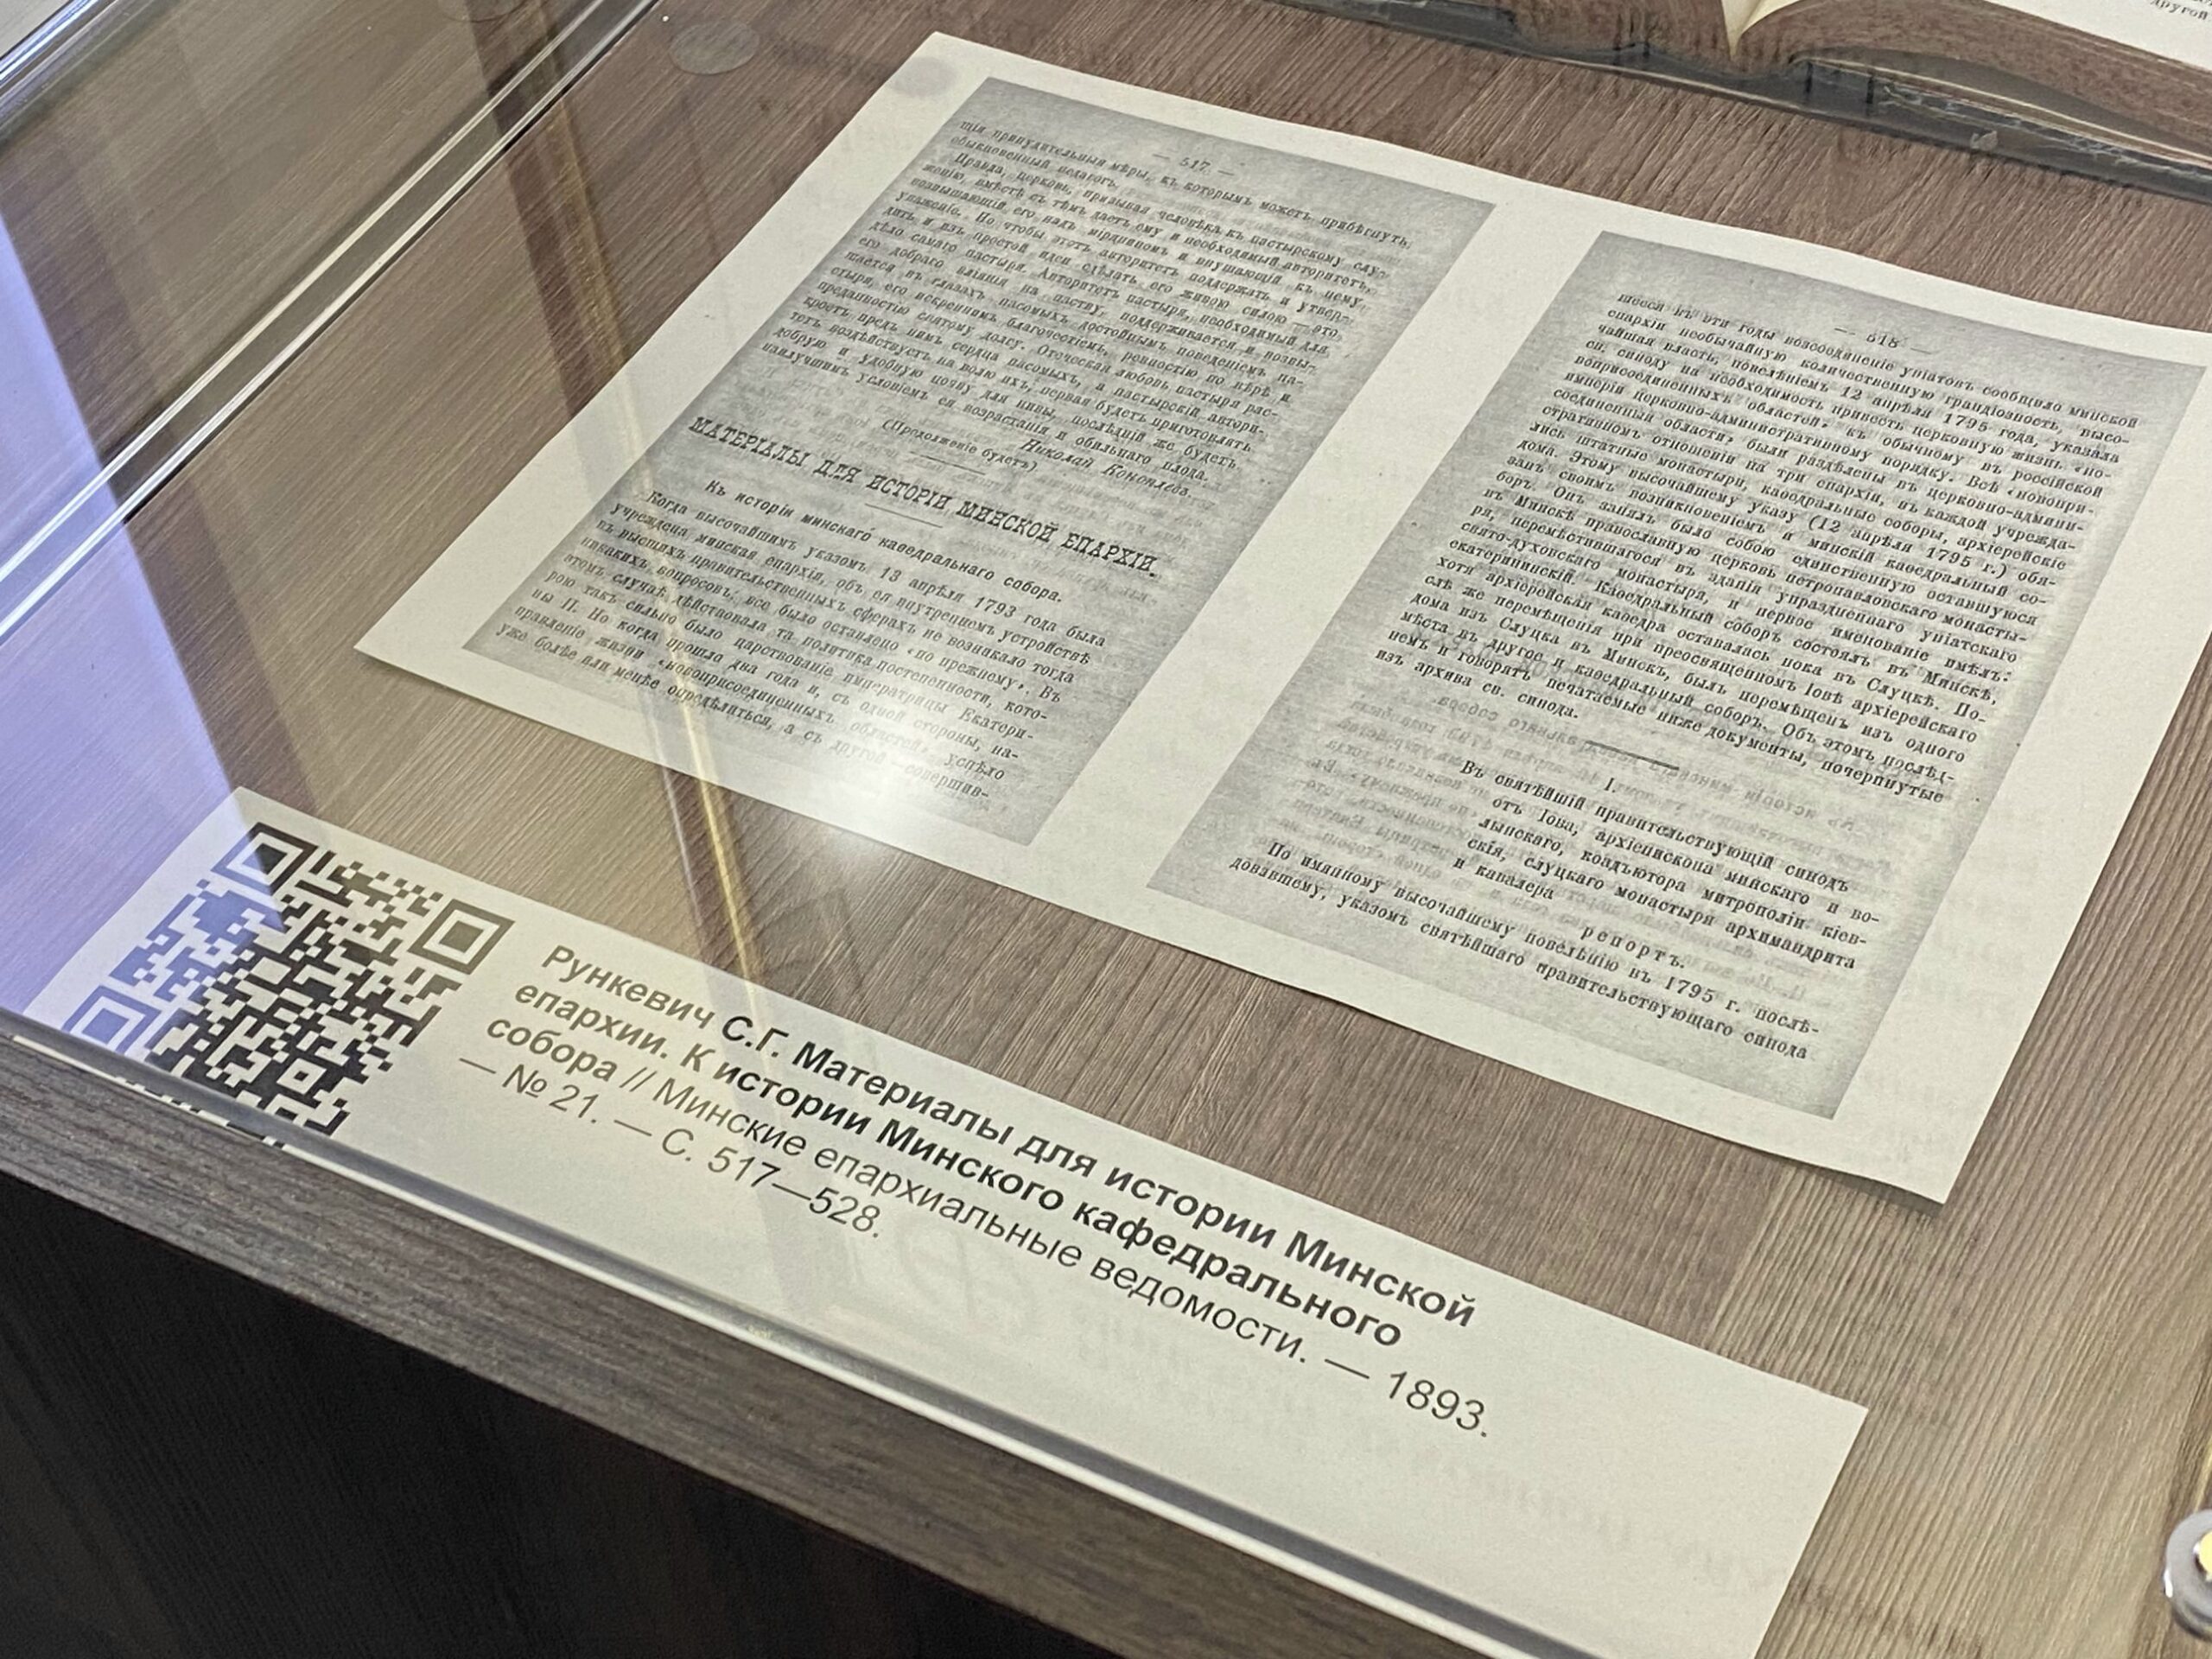 — 517 —
щія принудительныя мѣры, къ которымъ можетъ прибѣгнуть
обыкновенный педагогъ.
Правда, церковь, призывая человѣка къ пастырскому слу-
женію, вмѣстѣ съ тѣмъ даетъ ему и необходимый авторитетъ,
возвышающій его надъ міряниномъ и внушающій къ нему
уваженіе. Но чтобы этотъ авторитетъ поддержать и утвер-
дить и изъ простой идеи сдѣлать его живою силою — это
дѣло самаго пастыря. Авторитетъ пастыря, необходимый для
его добраго вліянія на паству, поддерживается и возвы-
шается въ глазахъ пасомыхъ достойнымъ поведеніемъ па-
стыря, его искреннимъ благочестіемъ, ревностію по вѣрѣ и
преданностію святому долгу. Отеческая любовь пастыря рас-
кроетъ предъ нимъ сердца пасомыхъ, а пастырскій автори-
тетъ воздѣйствуетъ на волю ихъ; первая будетъ приготовлять
добрую и удобную почву для нивы, послѣдній же будетъ
наилучшимъ условіемъ ея возрастанія и обильнаго плода.
Николай
(Продолженіе будетъ)
МАТЕРІАЛЫ ДЛЯ ИСТОРІИ МИНСКОЙ ЕПАРХІИ.
Къ исторіи минскаго каѳедральнаго собора.
Когда высочайшимъ указомъ 13 апрѣля 1793 года была
учреждена минская епархія, объ ея внутреннемъ устройствѣ
въ высшихъ правительственныхъ сферахъ не возникало тогда
никакихъ вопросовъ: все было оставлено «по прежнему». Въ
этомъ случаѣ дѣйствовала та политика постепенности, кото-
рою такъ сильно было царствованіе императрицы Екатери-
ны II. Но когда прошло два года и, съ одной стороны, на-
правленіе жизни «новоприсоединенныхъ областей» успѣло
уже болѣе или менѣе опредѣлиться, а съ другой совершив-
— 518 —
шееся въ эти годы возсоединеніе уніатовъ сообщило минской
епархіи необычайную количественную грандіозность, высо-
чайшая власть, повелѣніемъ 12 апрѣля 1795 года, указала
св. синоду на необходимость привесть церковную жизнь «но-
воприсоединенныхъ областей» къ обычному въ россійской
имперіи церковно-административному порядку. Всѣ «новопри-
соединенныя области» были раздѣлены въ церковно-админи-
стративномъ отношеніи на три епархіи, въ каждой учрежда-
лись штатные монастыри, каѳедральные соборы, архіерейскіе
дома. Этому высочайшему указу (12 апрѣля 1795 г.) обя-
занъ своимъ возникновеніемъ и минскій каѳедральный со-
боръ. Онъ занялъ было собою единственную оставшуюся
въ Минскѣ православную церковь петропавловскаго монасты-
ря, перемѣстившагося въ зданія упраздненнаго уніатскаго
свято-духовскаго монастыря, и первое именованіе имѣлъ:
екатерининскій. Каѳедральный соборъ состоялъ въ Минскѣ,
хотя архіерейская каѳедра оставалась пока въ Слуцкѣ. По-
слѣ же перемѣщенія при преосвященномъ Іовѣ архіерейскаго
дома изъ Слуцка въ Минскъ, былъ перемѣщенъ изъ одного
мѣста въ другое и каѳедральный соборъ. Объ этомъ послѣд-
немъ и говорятъ печатаемые ниже документы, почерпнутые
изъ архива св. синода.
I.
Въ святѣйшій правительствующій синодъ
отъ Іова, архіепископа минскаго и во-
лынскаго, коадъютора митрополіи кіев-
скія, слуцкаго монастыря архимандрита
и кавалера
репортъ.
По имянному высочайшему повелѣнію въ 1795 г. послѣ-
довавшему, указомъ святѣйшаго правительствующаго синода
Рункевич С.Г. Материалы для истории Минской
епархии. К истории Минского кафедрального
собора // Минские епархиальные ведомости. — 1893.
— № 21. — С. 517—528.